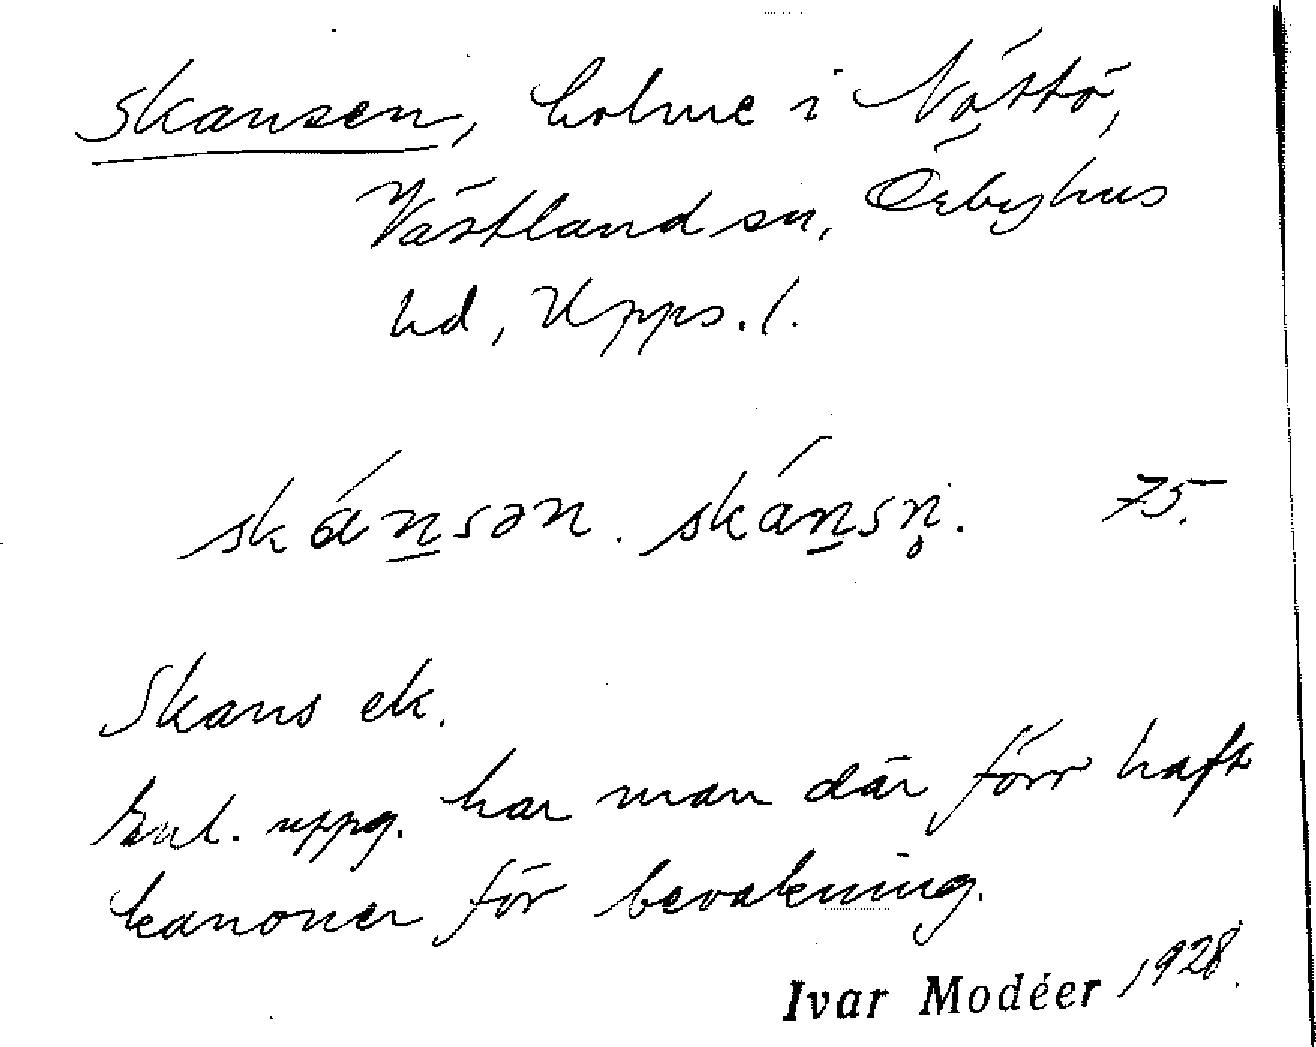 Skansen, holme i Nöttö,
Västland sn, Örbyhus
hd, Upps. l.
skánsən. skánsn̥. 75.
Skans ek.
Enl. uppg. har man där förr haft
kanoner för bevakning.
Ivar Modéer 1928.